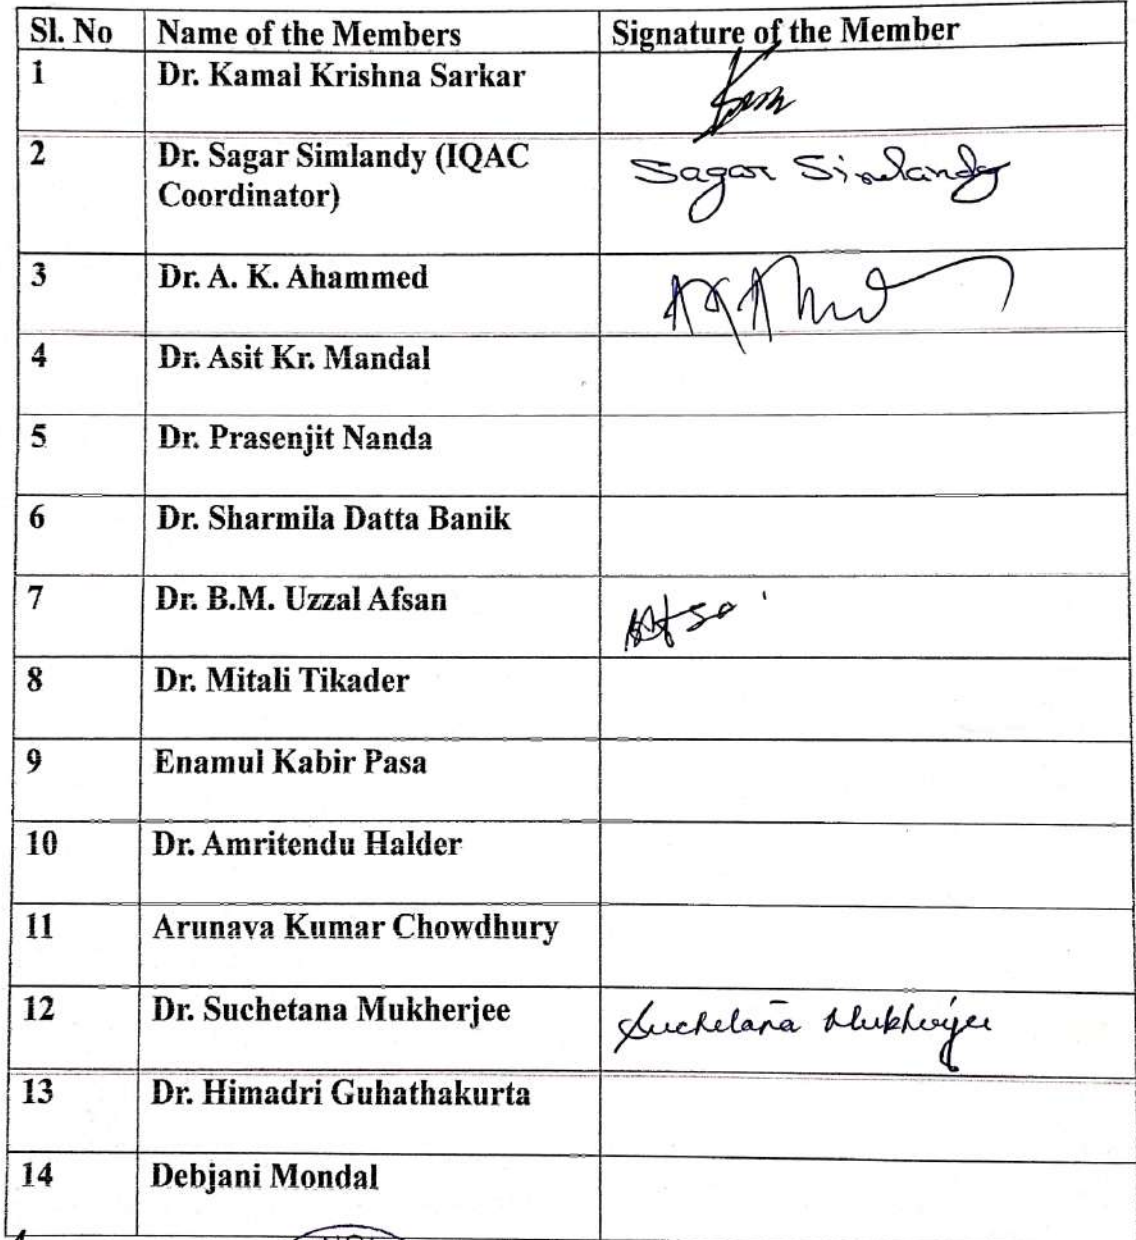 Sl. No Name of the Members Signature of the Member
1 Dr. Kamal Krishna Sarkar
2 Dr. Sagar Simlandy (IQAC Sagar Simlandy
Coordinator)
3 Dr. A. K. Ahammed
4 Dr. Asit Kr. Mandal
5 Dr. Prasenjit Nanda
6 Dr. Sharmila Datta Banik
7 Dr. B.M. Uzzal Afsan
8 Dr. Mitali Tikader
9 Enamul Kabir Pasa
10 Dr. Amritendu Halder
11 Arunava Kumar Chowdhury
12 Dr. Suchetana Mukherjee Suchetana Mukherjee
13 Dr. Himadri Guhathakurta
14 Debjani Mondal